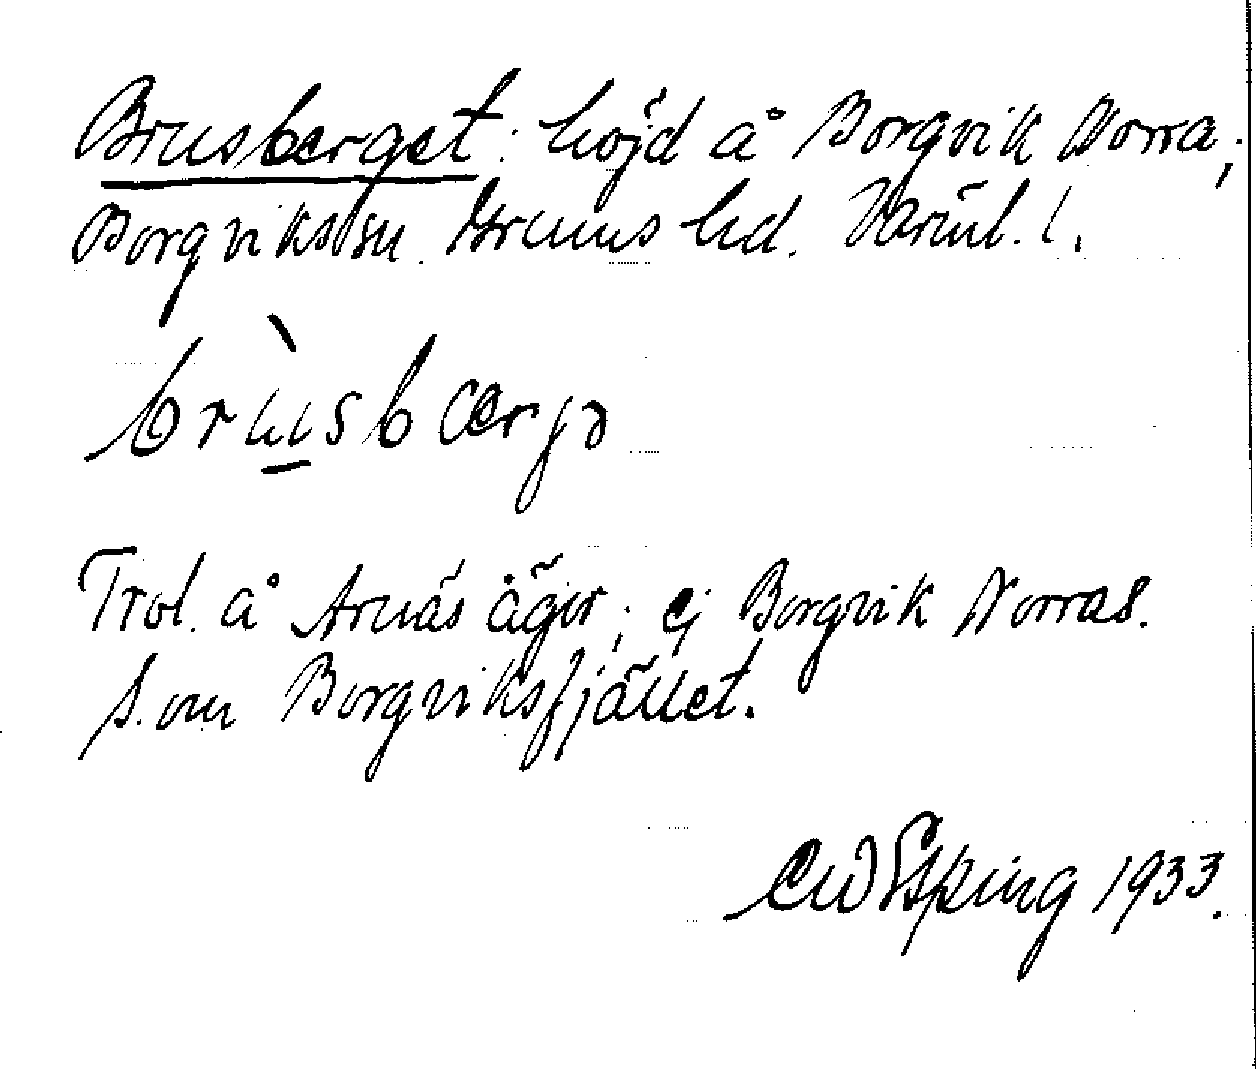 Brusberget: höjd å Borgvik Norra;
Borgviks sn. Grums hd. Värml. l.
brùsbærjə
Trol. å Arnäs ägor; ej Borgvik Norras.
S. om Borgviksfjället.
CW Esping 1933.